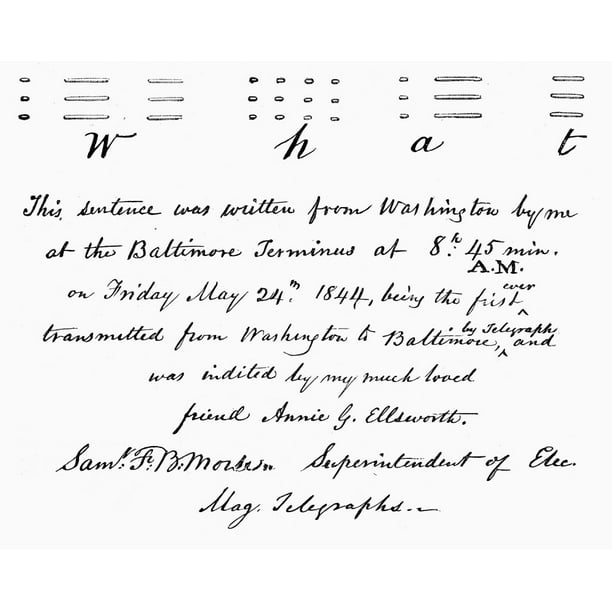 W h a t
This sentence was written from Washington by me
at the Baltimore Terminus at 8.h 45 min.
A.M.
on Friday May 24th 1844, being the first ever
transmitted from Washington to Baltimore, by Telegraph and
was indited by my much loved
friend Annie G. Ellsworth.
Saml. F. B. Morse. Superintendent of Elec.
Mag. Telegraphs.